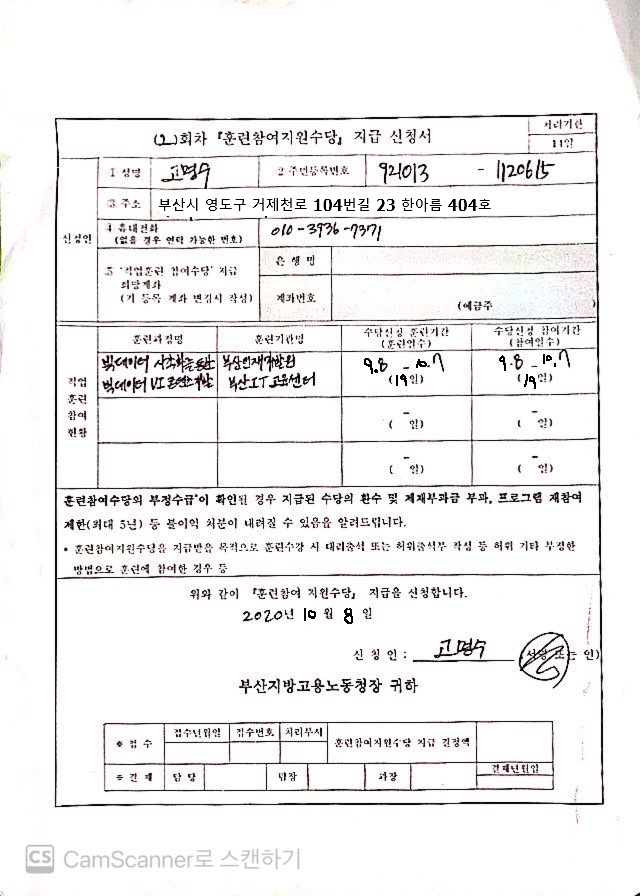 (2)회차 『훈련참여지원수당』 지급 신청서
처리기간
11일
신청인
① 성명 고명수 ② 주민등록번호 921013 - 1120615
③ 주소 부산시 영도구 거제천로 104번길 23 한아름 404호
④ 휴대전화
(없을 경우 연락 가능한 번호)
010-3936-7371
⑤ '직업훈련 참여수당' 지급
희망계좌
(기 등록 계좌 변경시 작성)
은 행 명
계좌번호
(예금주 )
직업
훈련
참여
현황
훈련과정명 훈련기관명 수당신청 훈련기간
(훈련일수)
수당신청 참여기간
(참여일수)
빅데이터 부산인재개발원
빅데이터 UI 부산IT교육센터
9.8 - 10.7
(19일)
9.8 - 10.7
(19일)
-
( 일)
-
( 일)
-
( 일)
-
( 일)
훈련참여수당의 부정수급*이 확인될 경우 지급된 수당의 환수 및 제재부과금 부과, 프로그램 재참여
제한(최대 5년) 등 불이익 처분이 내려질 수 있음을 알려드립니다.
* 훈련참여지원수당을 지급받을 목적으로 훈련수강 시 대리출석 또는 허위출석부 작성 등 허위 기타 부정한
방법으로 훈련에 참여한 경우 등
위와 같이 『훈련참여 지원수당』 지급을 신청합니다.
2020년 10월 8일
신 청 인 : 고명수 (서명 또는 인)
부산지방고용노동청장 귀하
※ 접 수 접수년월일 접수번호 처리부서 훈련참여지원수당 지급 결정액
※ 결 재 담 당 팀장 과장 결재년월일
CS CamScanner로 스캔하기